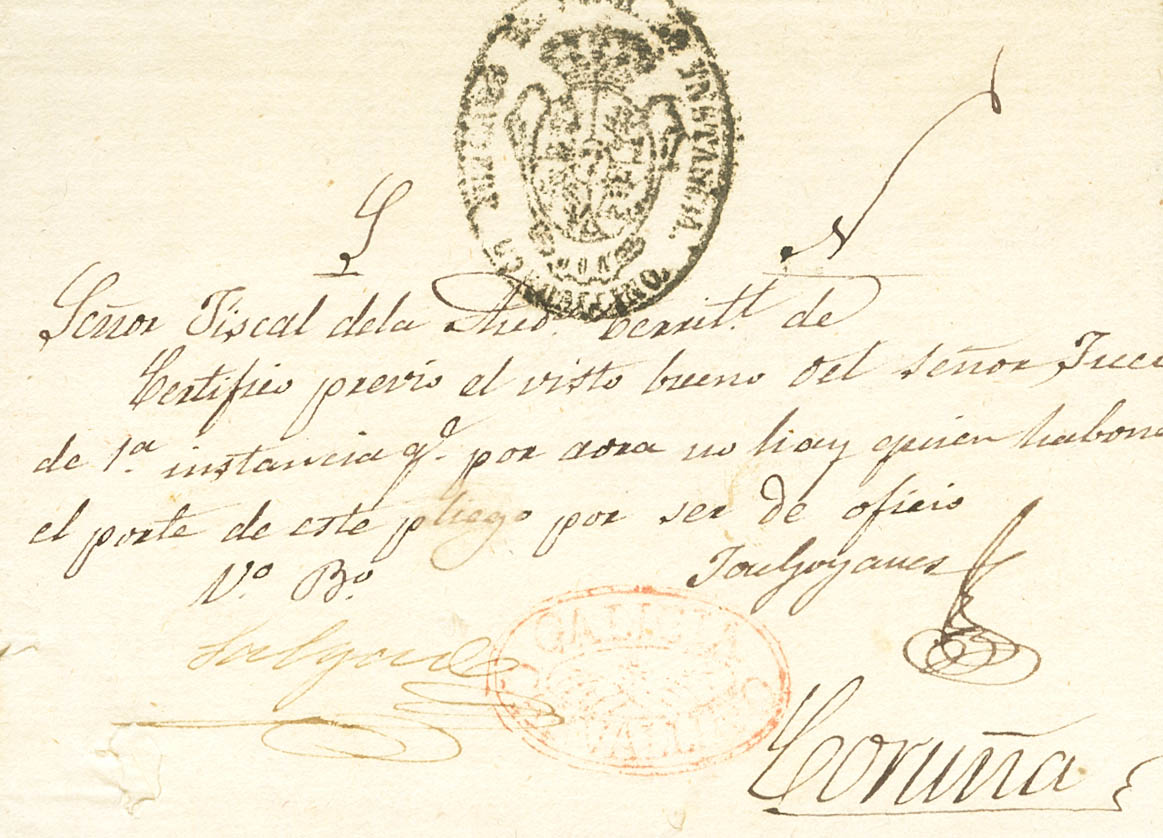 S N
Señor Fiscal dela Aud.ª territ.l de
Certifico previo el visto bueno del señor Juez
de 1.ª instancia q.e por aora no hay quien habone
el porte de este pliego por ser de oficio
V.º B.º
Salgado
GALICIA
CARVALLINO
Coruña